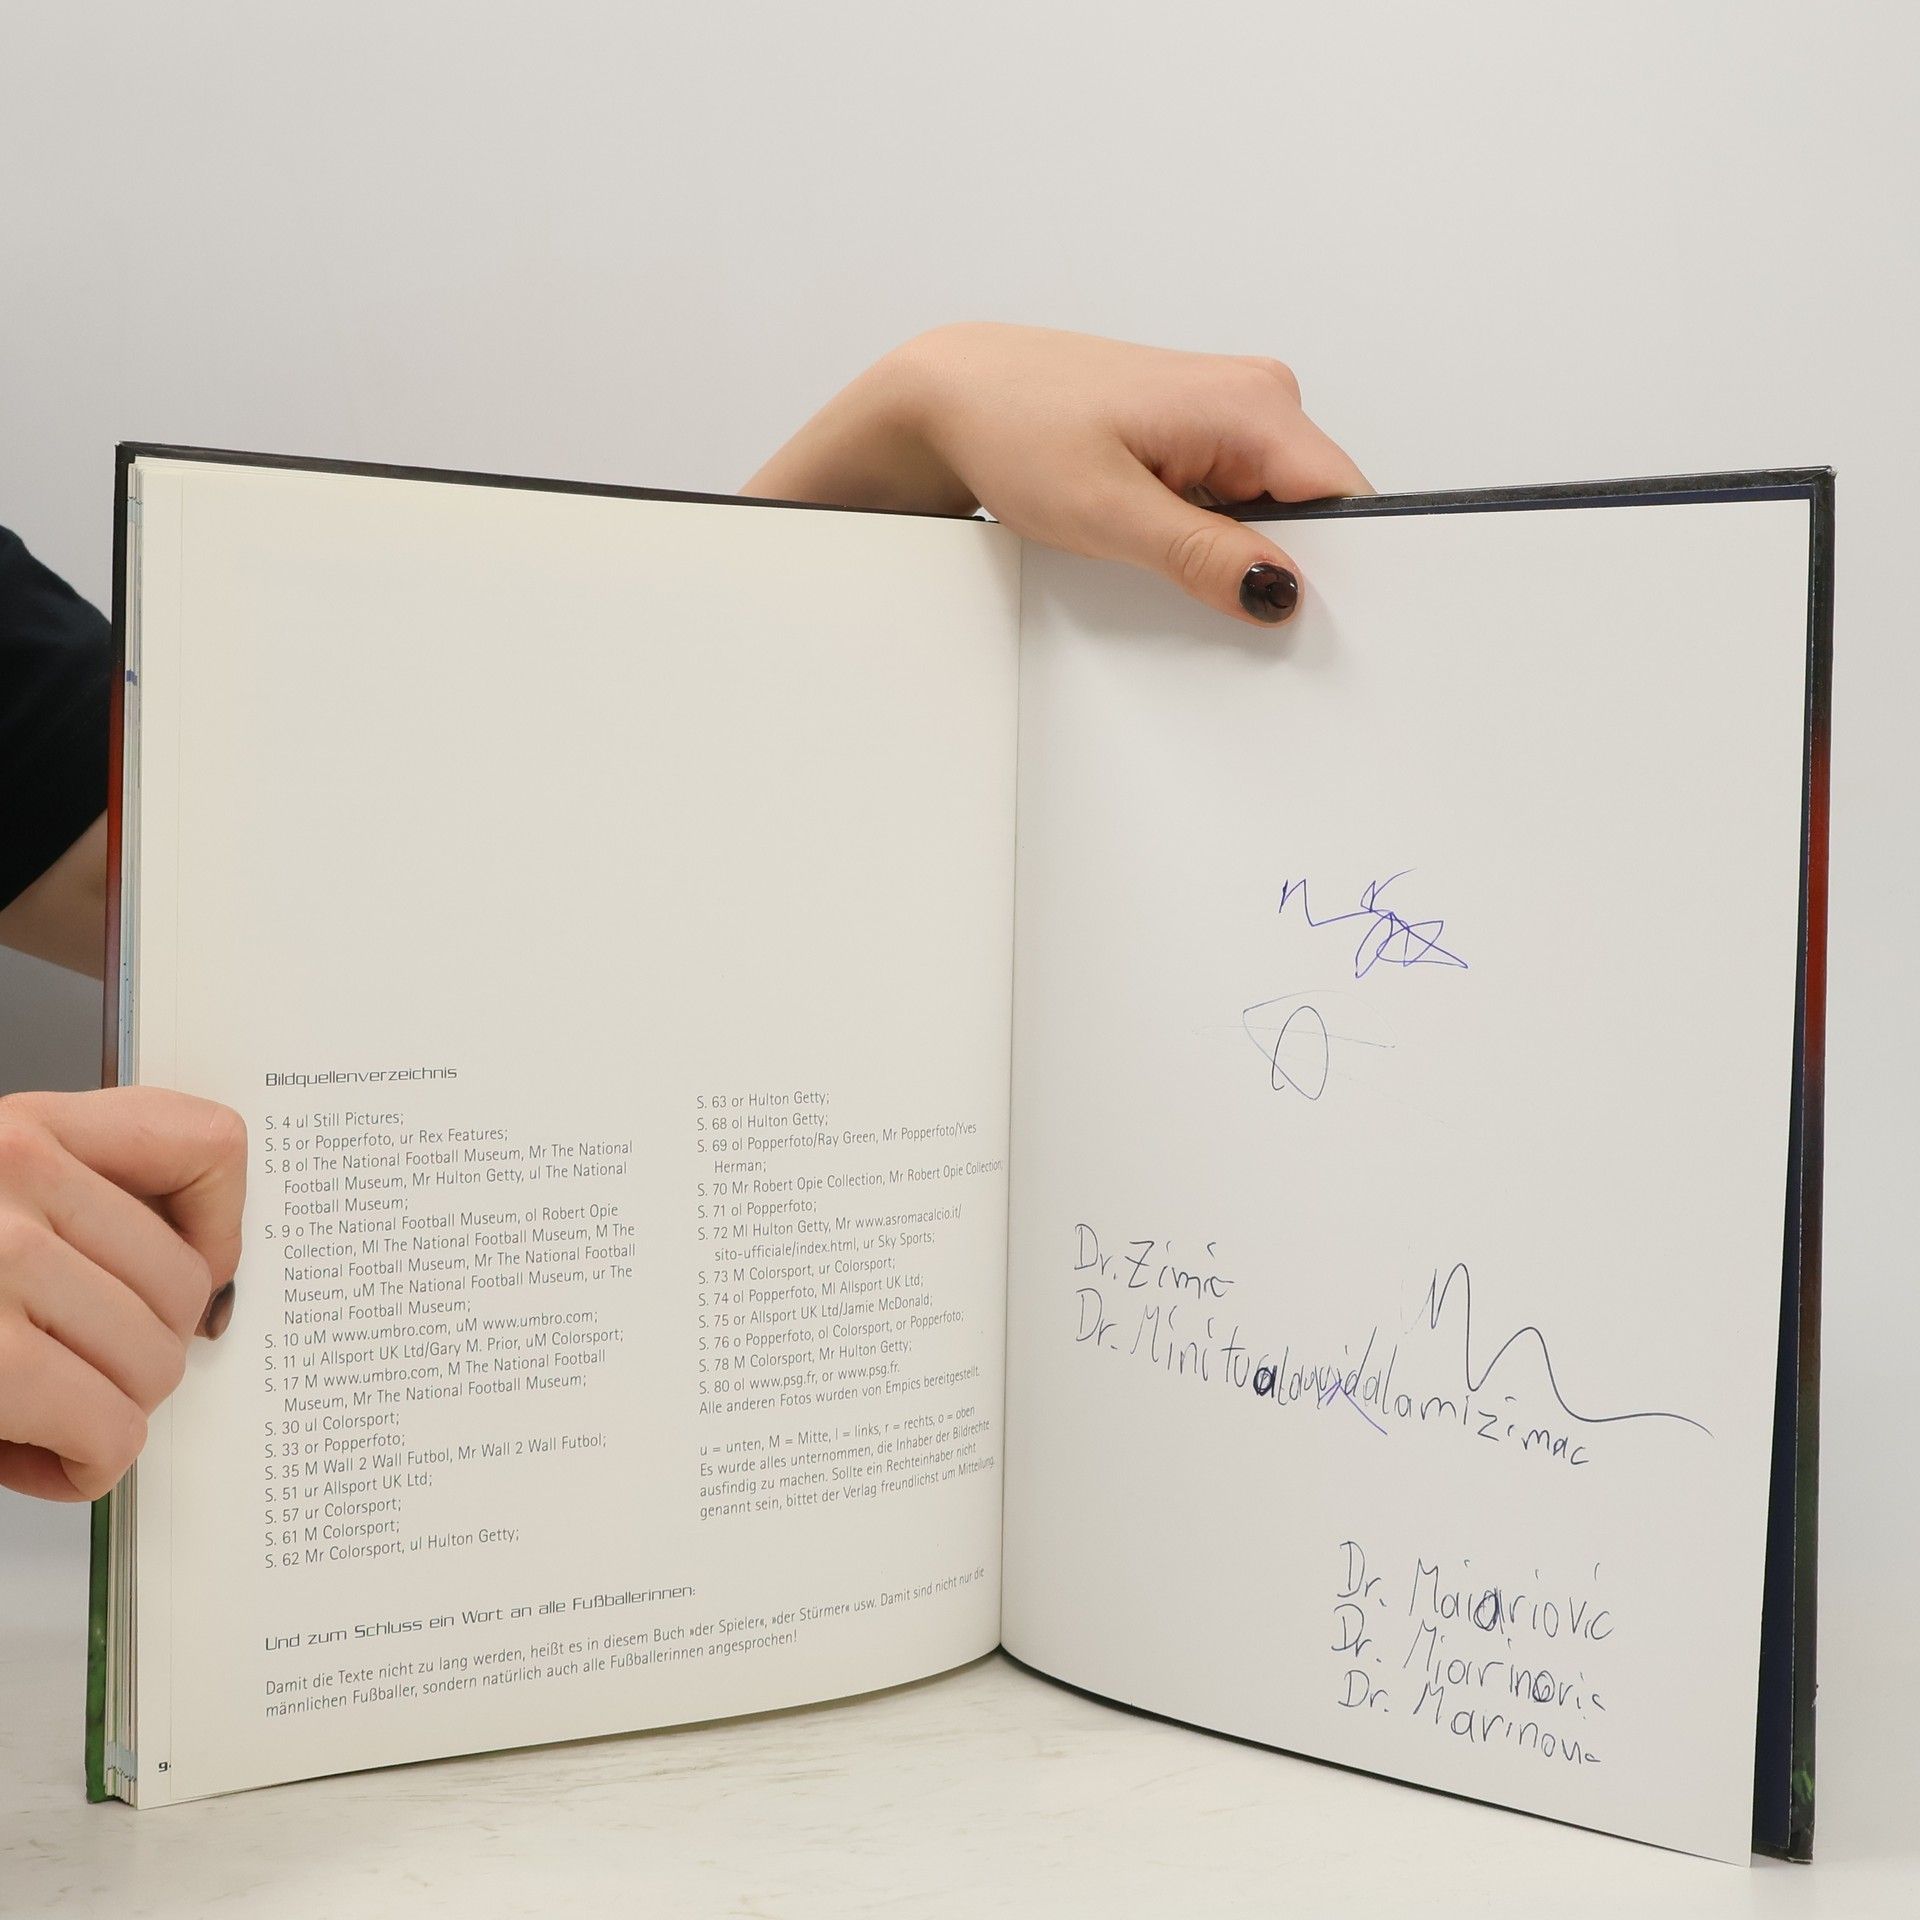 Bildquellenverzeichnis
S. 4 ul Still Pictures;
S. 5 or Popperfoto, ur Rex Features;
S. 8 ol The National Football Museum, Mr The National
Football Museum, Mr Hulton Getty, ul The National
Football Museum;
S. 9 o The National Football Museum, ol Robert Opie
Collection, Ml The National Football Museum, M The
National Football Museum, Mr The National Football
Museum, uM The National Football Museum, ur The
National Football Museum;
S. 10 uM www.umbro.com, uM www.umbro.com;
S. 11 ul Allsport UK Ltd/Gary M. Prior, uM Colorsport;
S. 17 M www.umbro.com, M The National Football
Museum, Mr The National Football Museum;
S. 30 ul Colorsport;
S. 33 or Popperfoto;
S. 35 M Wall 2 Wall Futbol, Mr Wall 2 Wall Futbol;
S. 51 ur Allsport UK Ltd;
S. 57 ur Colorsport;
S. 61 M Colorsport;
S. 62 Mr Colorsport, ul Hulton Getty;
S. 63 or Hulton Getty;
S. 68 ol Hulton Getty;
S. 69 ol Popperfoto/Ray Green, Mr Popperfoto/Yves
Herman;
S. 70 Mr Robert Opie Collection, Mr Robert Opie Collection;
S. 71 ol Popperfoto;
S. 72 Ml Hulton Getty, Mr www.asromacalcio.it/
sito-ufficiale/index.html, ur Sky Sports;
S. 73 M Colorsport, ur Colorsport;
S. 74 ol Popperfoto, Ml Allsport UK Ltd;
S. 75 or Allsport UK Ltd/Jamie McDonald;
S. 76 o Popperfoto, ol Colorsport, or Popperfoto;
S. 78 M Colorsport, Mr Hulton Getty;
S. 80 ol www.psg.fr, or www.psg.fr.
Alle anderen Fotos wurden von Empics bereitgestellt.
u = unten, M = Mitte, l = links, r = rechts, o = oben
Es wurde alles unternommen, die Inhaber der Bildrechte
ausfindig zu machen. Sollte ein Rechteinhaber nicht
genannt sein, bittet der Verlag freundlichst um Mitteilung.
Und zum Schluss ein Wort an alle Fußballerinnen:
Damit die Texte nicht zu lang werden, heißt es in diesem Buch »der Spieler«, »der Stürmer« usw. Damit sind nicht nur die
männlichen Fußballer, sondern natürlich auch alle Fußballerinnen angesprochen!
Dr. Zimic
Dr.
Dr.
Dr.
Dr. Marinovic